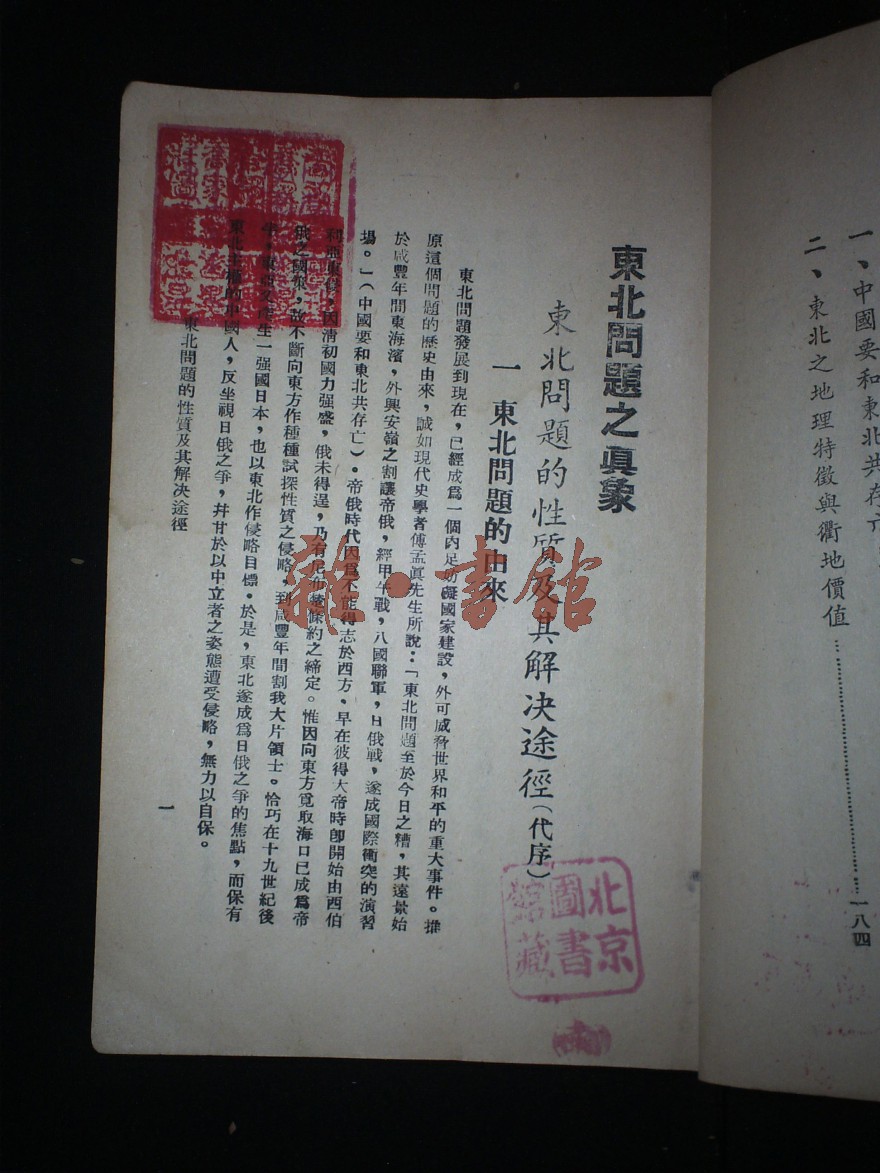 一、中國要和東北共存亡
二、東北之地理特徵與衢地價值……………一八四
東北問題之眞象
東北問題的性質及其解決途徑(代序)
一 東北問題的由來
東北問題發展到現在，已經成爲一個內足妨礙國家建設，外可威脅世界和平的重大事件。推
原這個問題的歷史由來，誠如現代史學者傅孟眞先生所說：「東北問題至於今日之糟，其遠景始
於咸豐年間東海濱，外興安嶺之割讓帝俄，經甲午戰，八國聯軍，日俄戰，遂成國際衝突的演習
場。」(中國要和東北共存亡)。帝俄時代因爲不能得志於西方、早在彼得大帝時卽開始由西伯
利亞東侵，因清初國力强盛，俄未得逞，乃有尼布楚條約之締定。惟因向東方覓取海口已成爲帝
俄之國策，故不斷向東方作種種試探性質之侵略，到咸豐年間割我大片領土。恰巧在十九世紀後
生一强國日本，也以東北作侵略目標。於是，東北遂成爲日俄之爭的焦點，而保有
東北主權的中國人，反坐視日俄之爭，幷甘於以中立者之姿態遭受侵略，無力以自保。
東北問題的性質及其解決途徑
一
北京
圖書
館藏
雜·書館